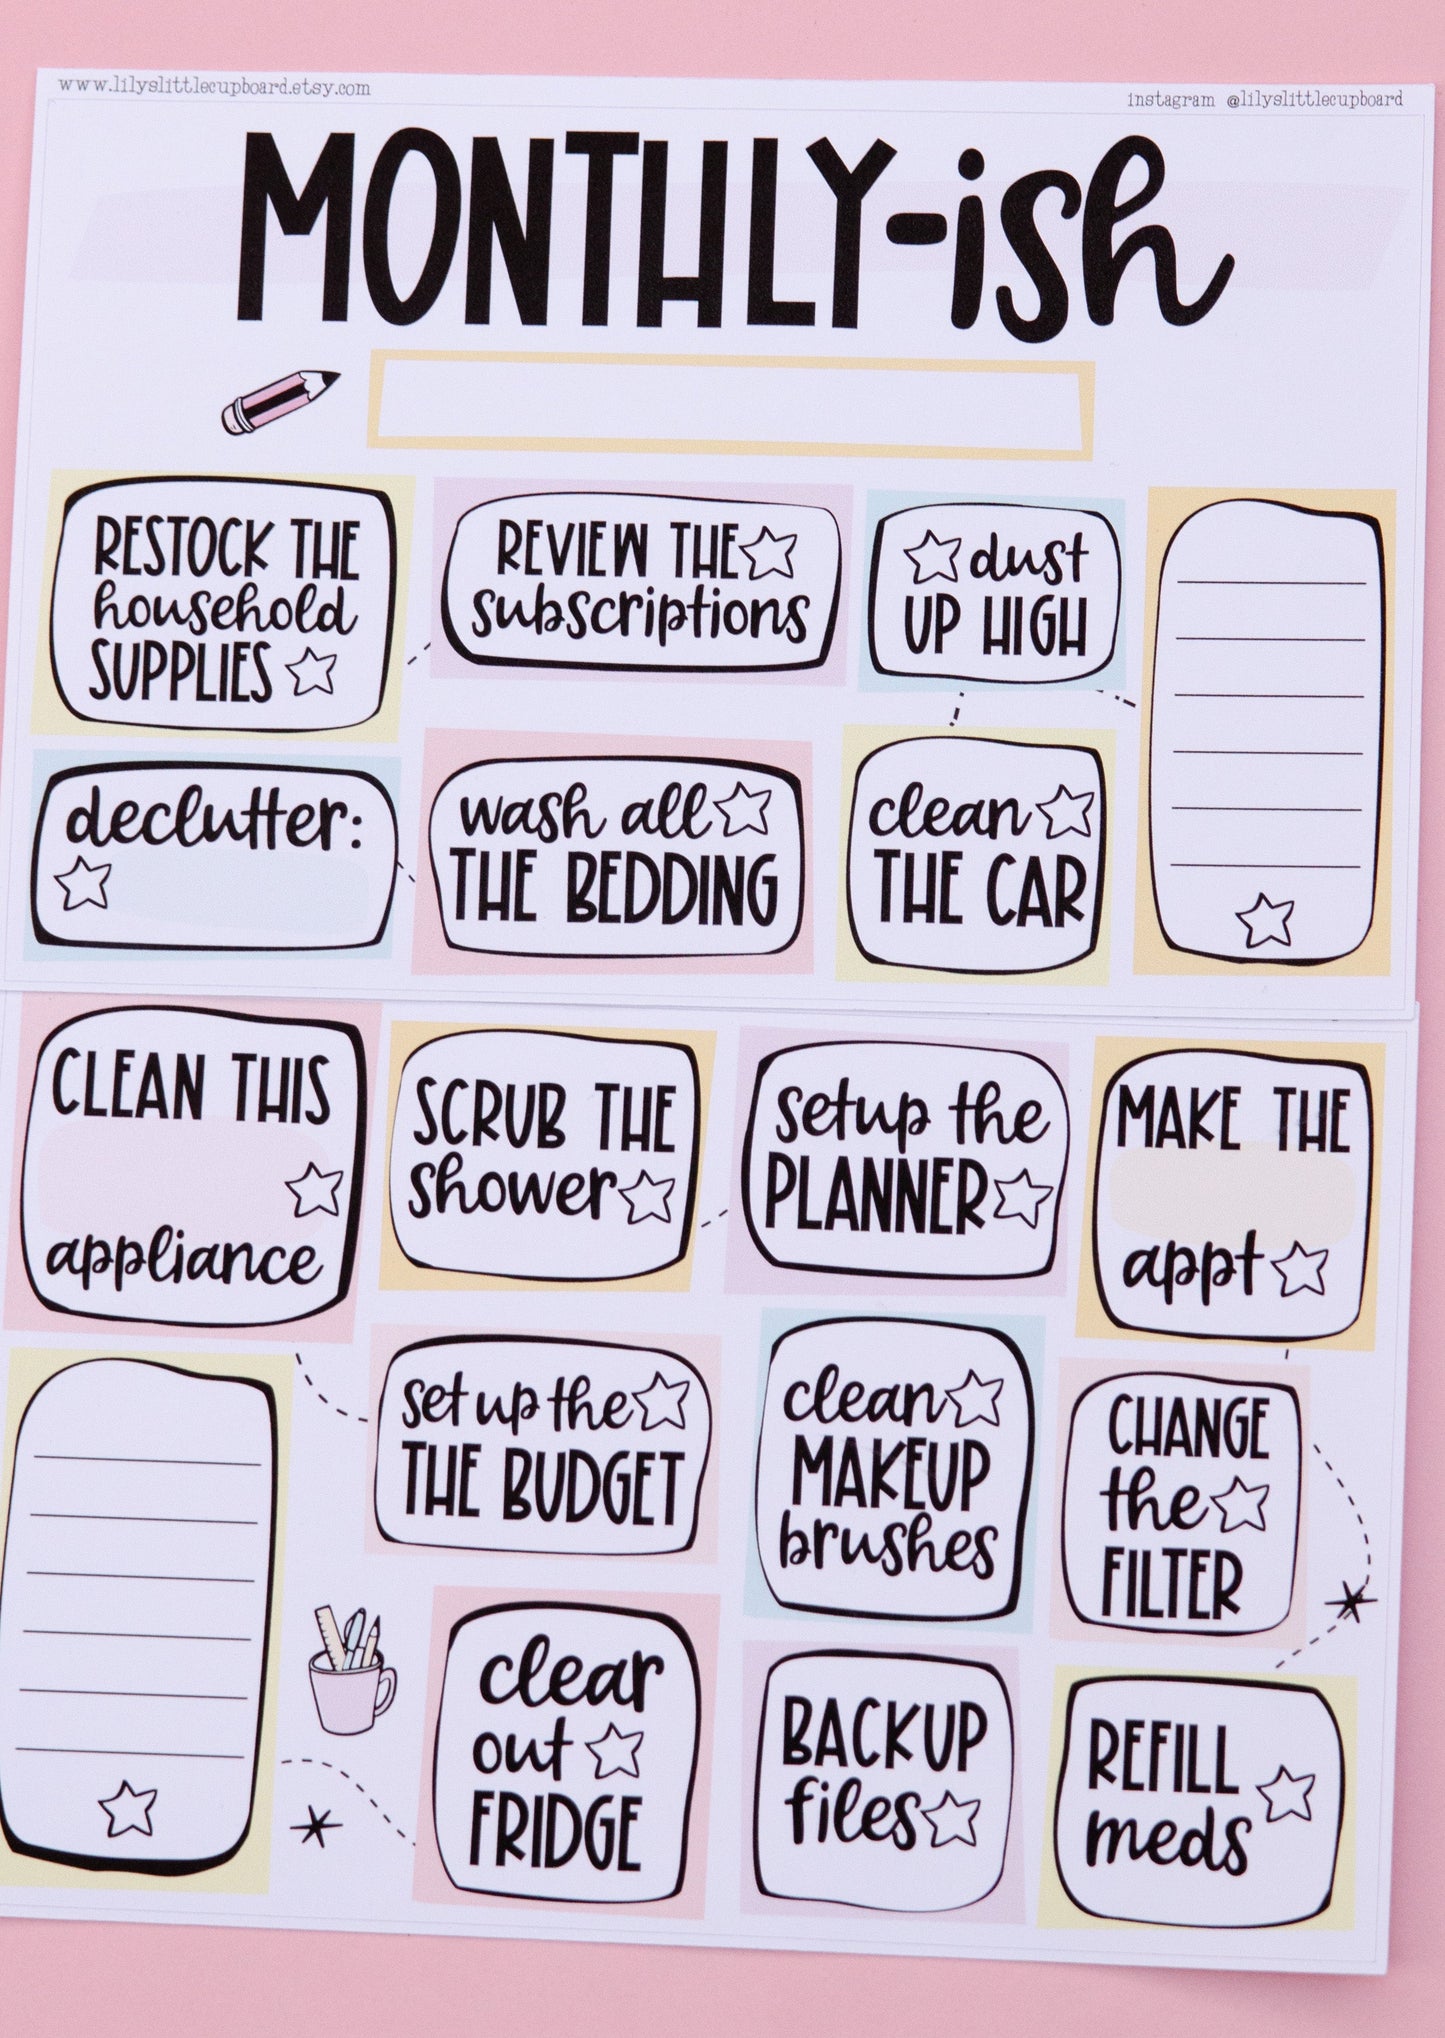 www.lilyslittlecupboard.etsy.com
instagram @lilyslittlecupboard
MONTHLY-ish
RESTOCK THE
household
SUPPLIES
REVIEW THE
subscriptions
dust
UP HIGH
declutter:
wash all
THE BEDDING
clean
THE CAR
CLEAN THIS
appliance
SCRUB THE
shower
setup the
PLANNER
MAKE THE
appt
set up the
THE BUDGET
clean
MAKEUP
brushes
CHANGE
the
FILTER
clear
out
FRIDGE
BACKUP
files
REFILL
meds